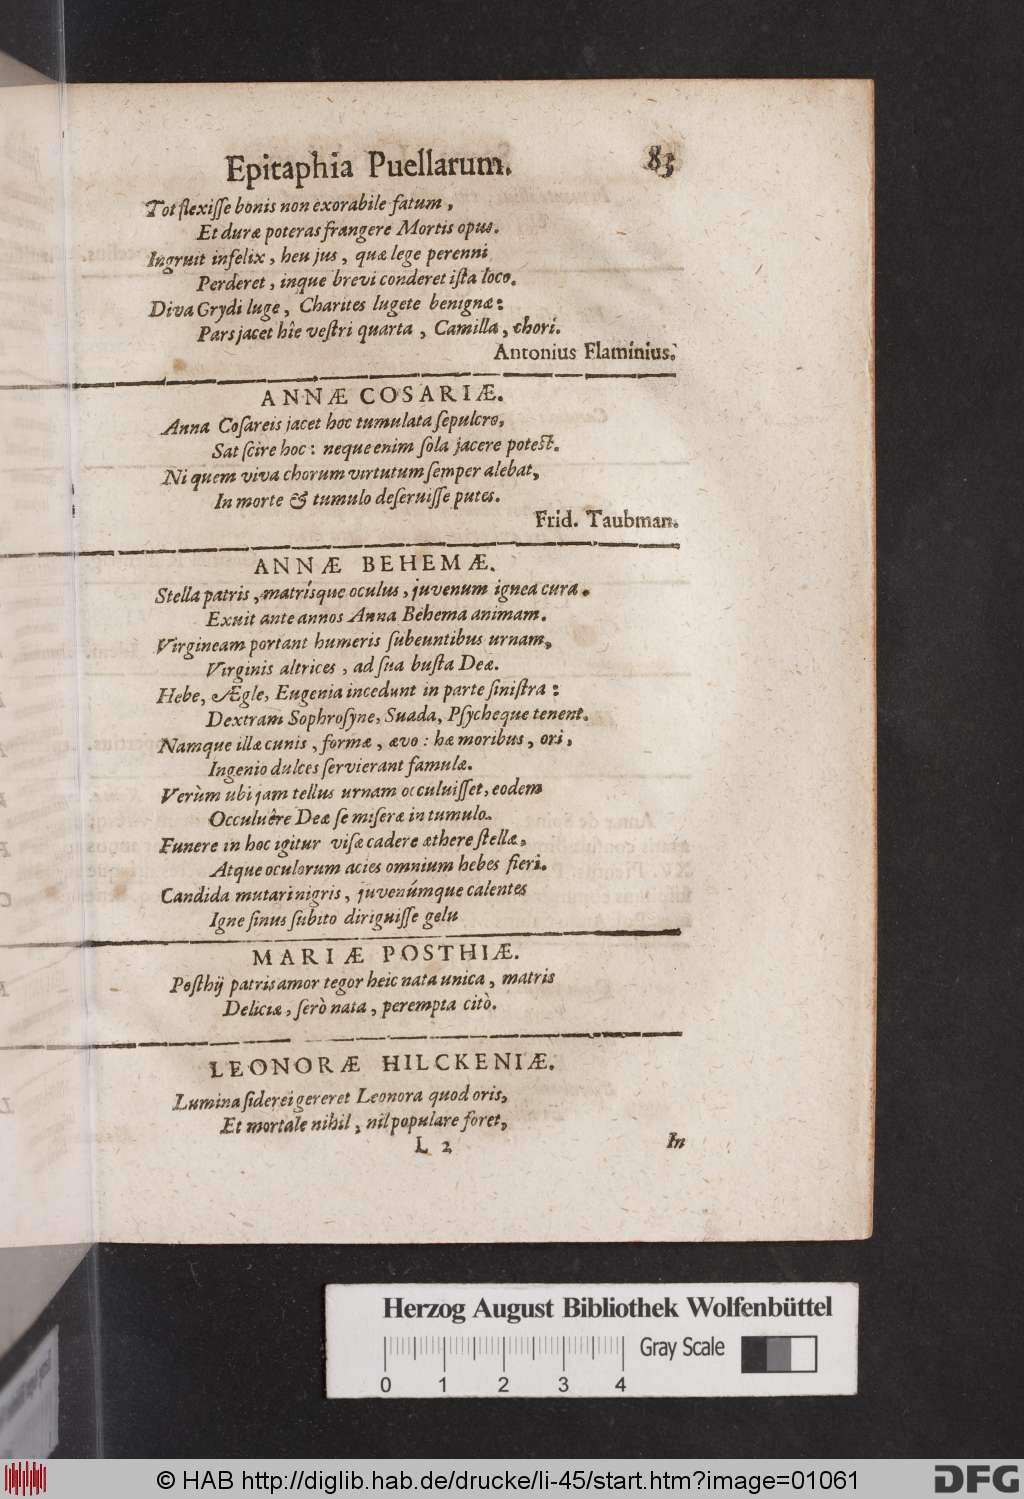 Epitaphia Puellarum. 83
Tot flexiſſe bonis non exorabile fatum,
Et duræ poteras frangere Mortis opus.
Ingruit infelix, heu jus, quæ lege perenni
Perderet, inque brevi conderet iſta loco.
Diva Grydi luge, Charites lugete benignæ:
Pars jacet hîe veſtri quarta, Camilla, chori.
Antonius Flaminius.
ANNÆ COSARIÆ.
Anna Coſareis jacet hoc tumulata ſepulcro,
Sat ſcire hoc: neque enim ſola jacere poteſt.
Ni quem viva chorum virtutum ſemper alebat,
In morte & tumulo deſeruiſſe putes.
Frid. Taubman.
ANNÆ BEHEMÆ.
Stella patris, matrisque oculus, juvenum ignea cura.
Exuit ante annos Anna Behema animam.
Virgineam portant humeris ſubeuntibus urnam,
Virginis altrices, ad ſua buſta Deæ.
Hebe, Ægle, Eugenia incedunt in parte ſiniſtra:
Dextram Sophroſyne, Suada, Pſycheque tenent.
Namque illæ cunis, formæ, ævo: hæ moribus, ori,
Ingenio dulces ſervierant famulæ.
Verùm ubi jam tellus urnam occuluiſſet, eodem
Occuluêre Deæ ſe miſeræ in tumulo.
Funere in hoc igitur viſæ cadere æthere ſtellæ,
Atque oculorum acies omnium hebes fieri.
Candida mutari nigris, juvenúmque calentes
Igne ſinus ſubito diriguiſſe gelu
MARIÆ POSTHIÆ.
Poſthij patris amor tegor heic nata unica, matris
Deliciæ, ſerò nata, perempta citò.
LEONORÆ HILCKENIÆ.
Lumina ſiderei gereret Leonora quod oris,
Et mortale nihil, nil populare foret,
L 2 In
Herzog August Bibliothek Wolfenbüttel
0 1 2 3 4 Gray Scale
© HAB http://diglib.hab.de/drucke/li-45/start.htm?image=01061
DFG